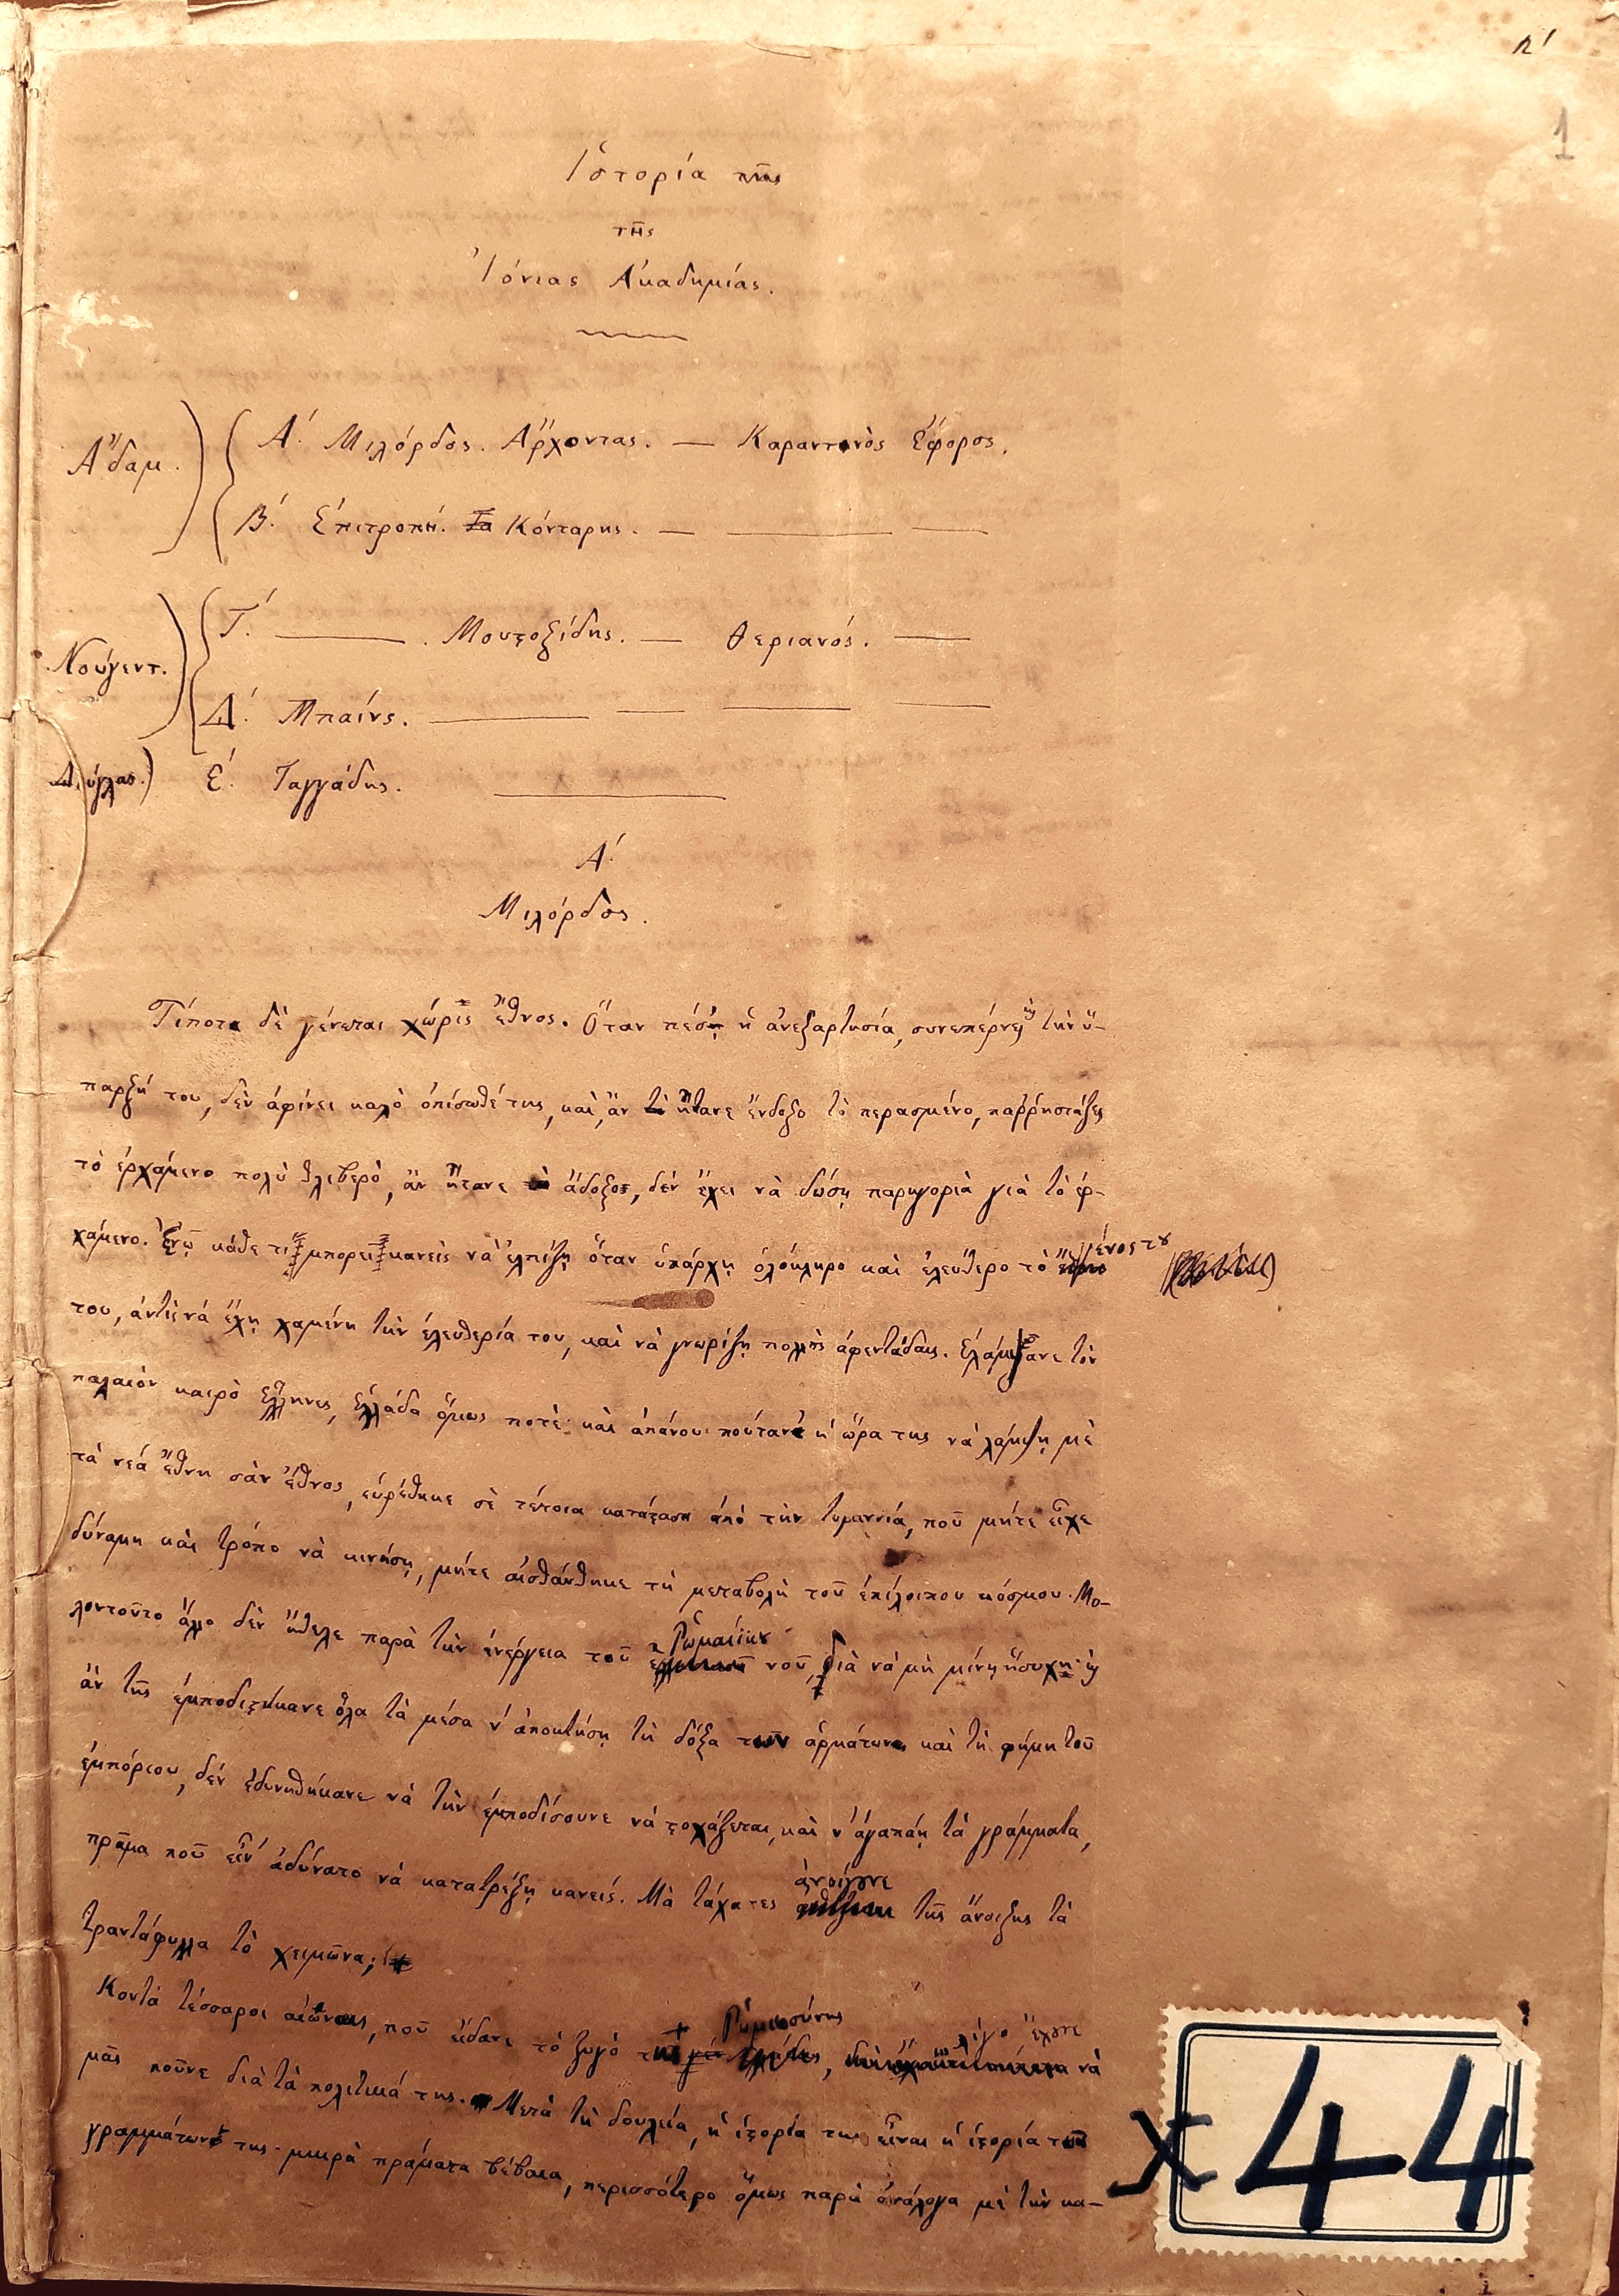 1
Ἱστορία τῆς
τῆς
Ἰόνιας Ἀκαδημίας.
Ἄδαμ.
Α΄. Μιλόρδος. Ἄρχοντας. — Καραντινὸς Ἔφορος.
Β΄. Ἐπιτροπή. Κόνταρης. —
Νούγεντ.
Γ΄. — . Μουστοξίδης. — Θεριανός. —
Δ΄. Μπαίνς. —
Δούγλας.
Ε΄. Ταγγάδης.
Α΄.
Μιλόρδος.
Τίποτα δὲ γένεται χωρὶς ἔθνος. Ὅταν πέσῃ ἡ ἀνεξαρτησία, συνεπέρνει τὴν ὕ-
παρξή του, δὲν ἀφίνει καλὸ ὀπίσωθέ της, καὶ, ἂν ἤτανε ἔνδοξο τὸ περασμένο, παῤῥησιάζει
τὸ ἐρχάμενο πολὺ θλιβερὸ, ἂν ἤτανε ἄδοξο, δὲν ἔχει νὰ δώσῃ παρηγοριὰ γιὰ τὸ ἐρ-
χάμενο. Ἐνῷ κάθε τι μπορεῖ κανεὶς νὰ ἐλπίζῃ ὅταν ὑπάρχῃ ὁλόκληρο καὶ ἐλεύθερο τὸ γένος του
του, ἀντὶ νά ἔχῃ χαμένη τὴν ἐλευθερία του, καὶ νὰ γνωρίζῃ πολλὲς ἀφεντάδαις. Ἐλάμψανε τὸν
παλαιὸν καιρὸ Ἕλληνες, Ἑλλάδα ὅμως ποτὲ· καὶ ἀπάνου πούτανε ἡ ὥρα της νὰ λάμψῃ μὲ
τὰ νεά ἔθνη σὰν ἔθνος, εὑρέθηκε σὲ τέτοια κατάσταση ἀπὸ τὴν τυραννία, ποῦ μήτε εἶχε
δύναμη καὶ τρόπο νὰ κινήσῃ, μήτε αἰσθάνθηκε τὴ μεταβολὴ τοῦ ἐπίλοιπου κόσμου. Μο-
λοντοῦτο ἄλλο δὲν ἤθελε παρὰ τὴν ἐνέργεια τοῦ Ῥωμαίϊκου νοῦ, διὰ νὰ μὴ μένῃ ἥσυχη· καὶ
ἂν τῆς ἐμποδιστήκανε ὅλα τὰ μέσα ν' ἀποκτήσῃ τὴ δόξα τῶν ἀρμάτωνε καὶ τὴ φήμη τοῦ
ἐμπόριου, δὲν ἐδυνηθήκανε νὰ τὴν ἐμποδίσουνε νὰ στοχάζεται, καὶ ν' ἀγαπάῃ τὰ γράμματα,
πρᾶμα ποῦ εἶν' ἀδύνατο νὰ κατατρέξῃ κανείς. Μὰ τάχατες ἀνοίγουνε τῆς ἄνοιξης τὰ
τραντάφυλλα τὸ χειμῶνα;
Κοντὰ τέσσαροι αἰῶνες, ποῦ εἴδανε τὸ ζυγὸ τῆς Ῥωμιοσύνης, λίγο ἔχουνε νὰ
μᾶς ποῦνε διὰ τὰ πολιτικά της. Μετὰ τὴ δουλεία, ἡ ἱστορία της εἶναι ἡ ἱστορία τῶν
γραμμάτων της· μικρὰ πράματα βέβαια, περισσότερο ὅμως παρὰ ἀνάλογα μὲ τὴν κα-
Χ 44